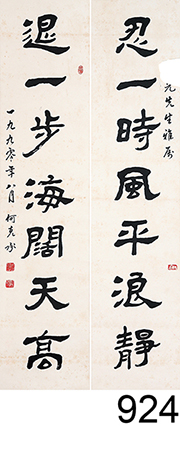 忍一時風平浪靜
元先生雅屬
退一步海闊天高
一九九零年八月 何克
924